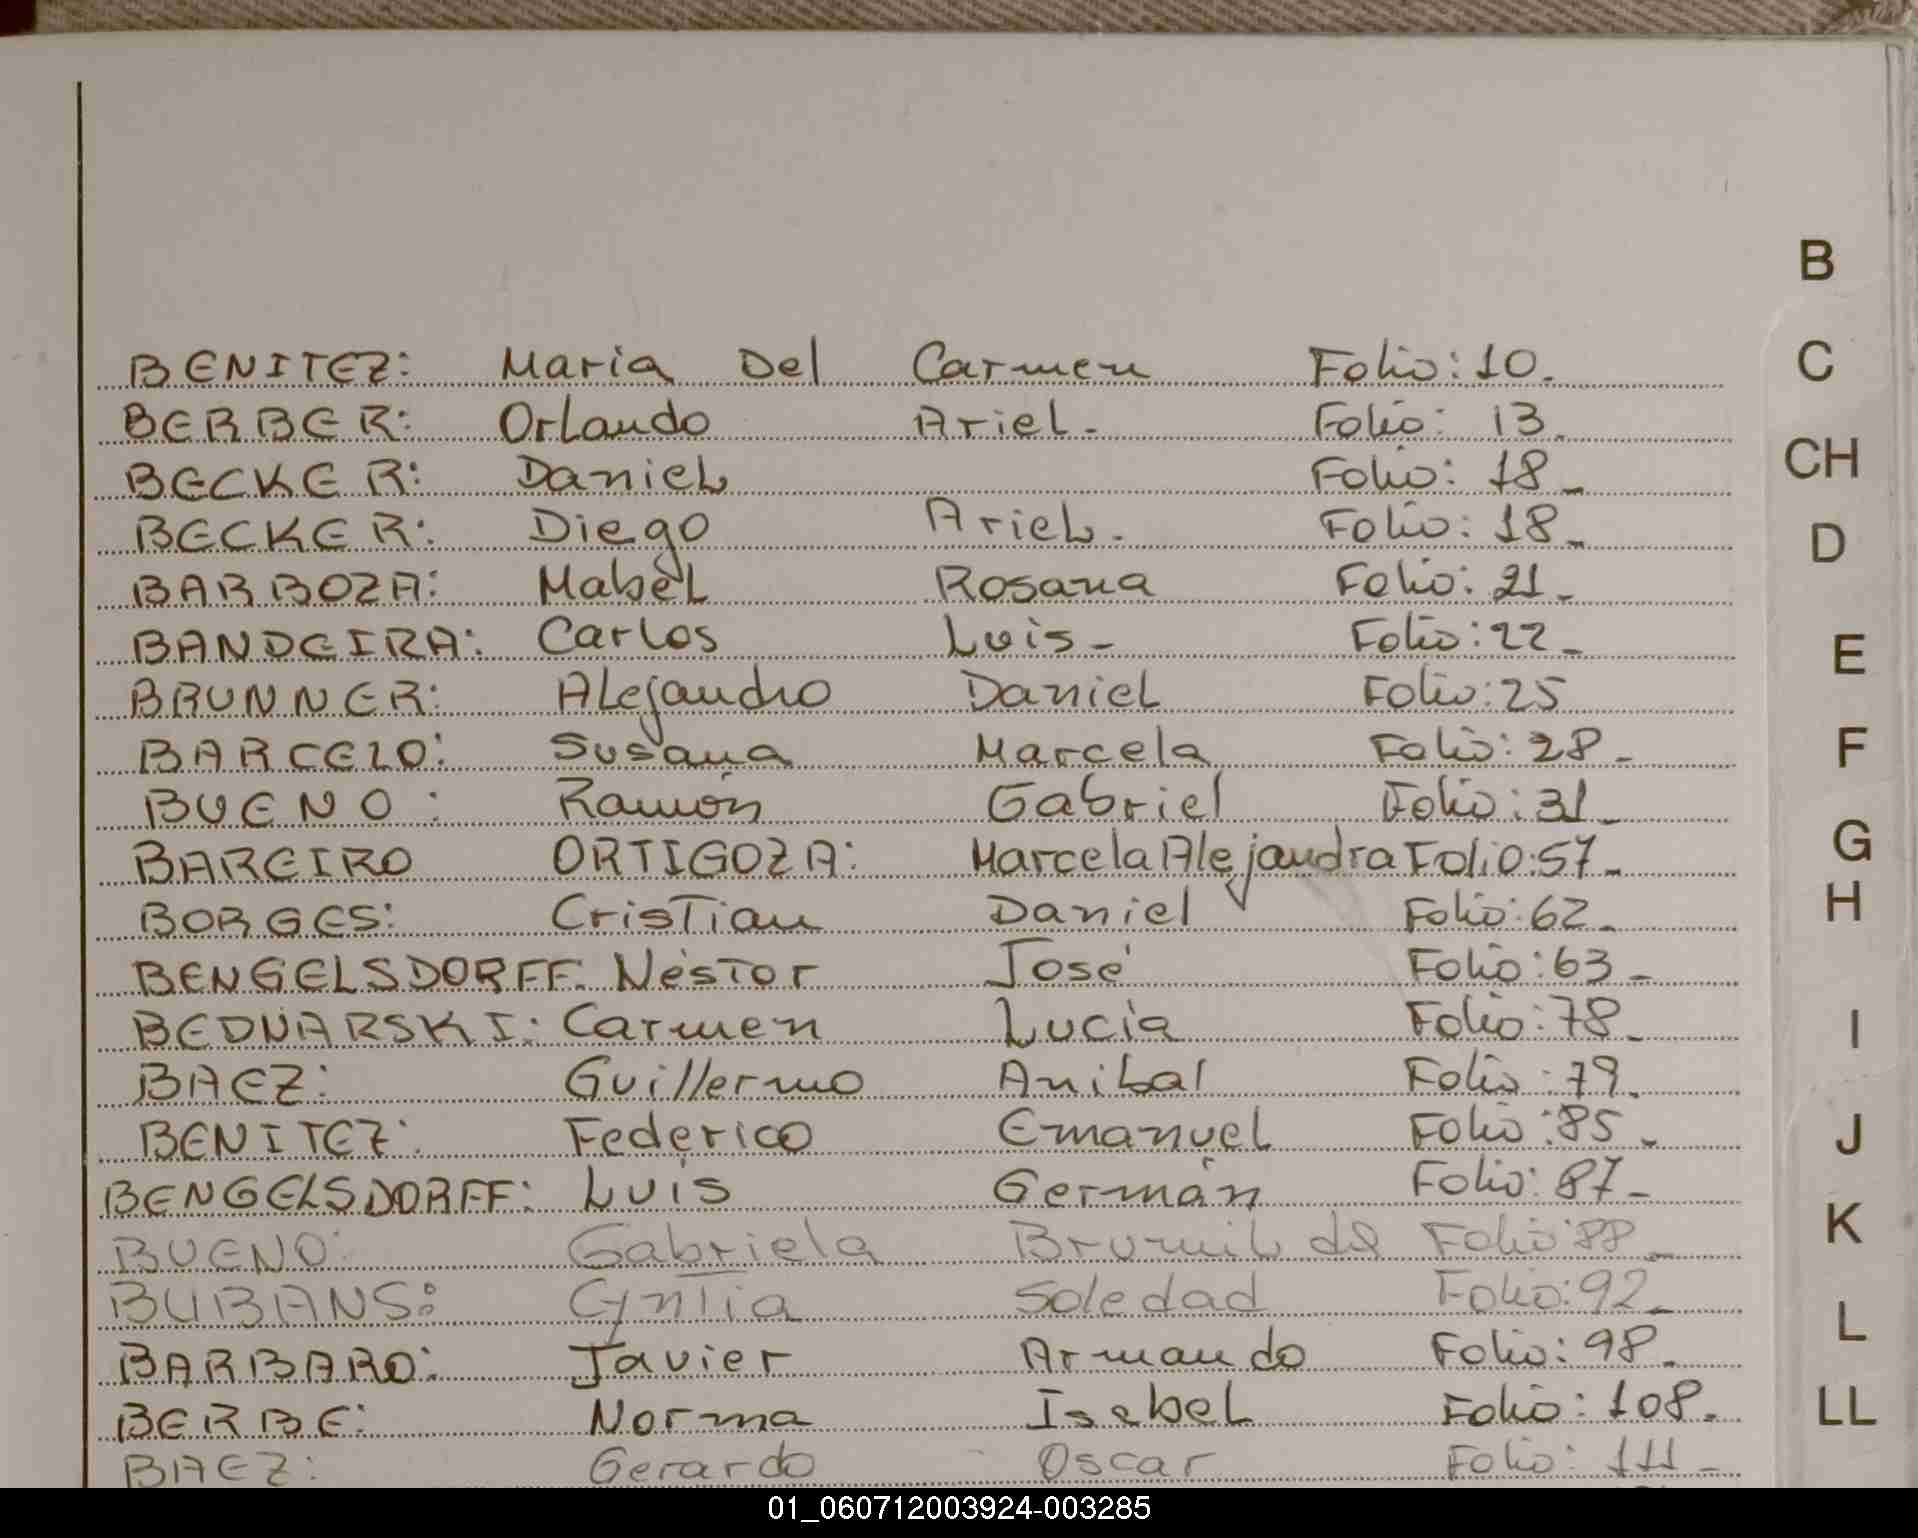 B
C
CH
D
E
F
G
H
I
J
K
L
LL
BENITEZ: Maria Del Carmen Folio: 10.
BERBER: Orlando Ariel. Folio: 13.
BECKER: Daniel Folio: 18_
BECKER: Diego Ariel. Folio: 18_
BARBOZA: Mabel Rosana Folio: 21_
BANDEIRA: Carlos Luis_ Folio: 22_
BRUNNER: Alejandro Daniel Folio: 25
BARCELO: Susana Marcela Folio: 28_
BUENO: Ramón Gabriel Folio: 31_
BAREIRO ORTIGOZA: Marcela Alejandra Folio: 57_
BORGES: Cristian Daniel Folio: 62_
BENGELSDORFF. Néstor José Folio: 63_
BEDNARSKI: Carmen Lucía Folio: 78_
BAEZ: Guillermo Anibal Folio: 79_
BENITEZ: Federico Emanuel Folio: 85_
BENGELSDORFF: Luis Germán Folio: 87_
BUENO: Gabriela Brumilda Folio: 88_
BUBANS: Cyntia Soledad Folio: 92_
BARBARO: Javier Armando Folio: 98.
BERBE: Norma Isabel Folio: 108.
BAEZ: Gerardo Oscar Folio: 111_
01_060712003924-003285